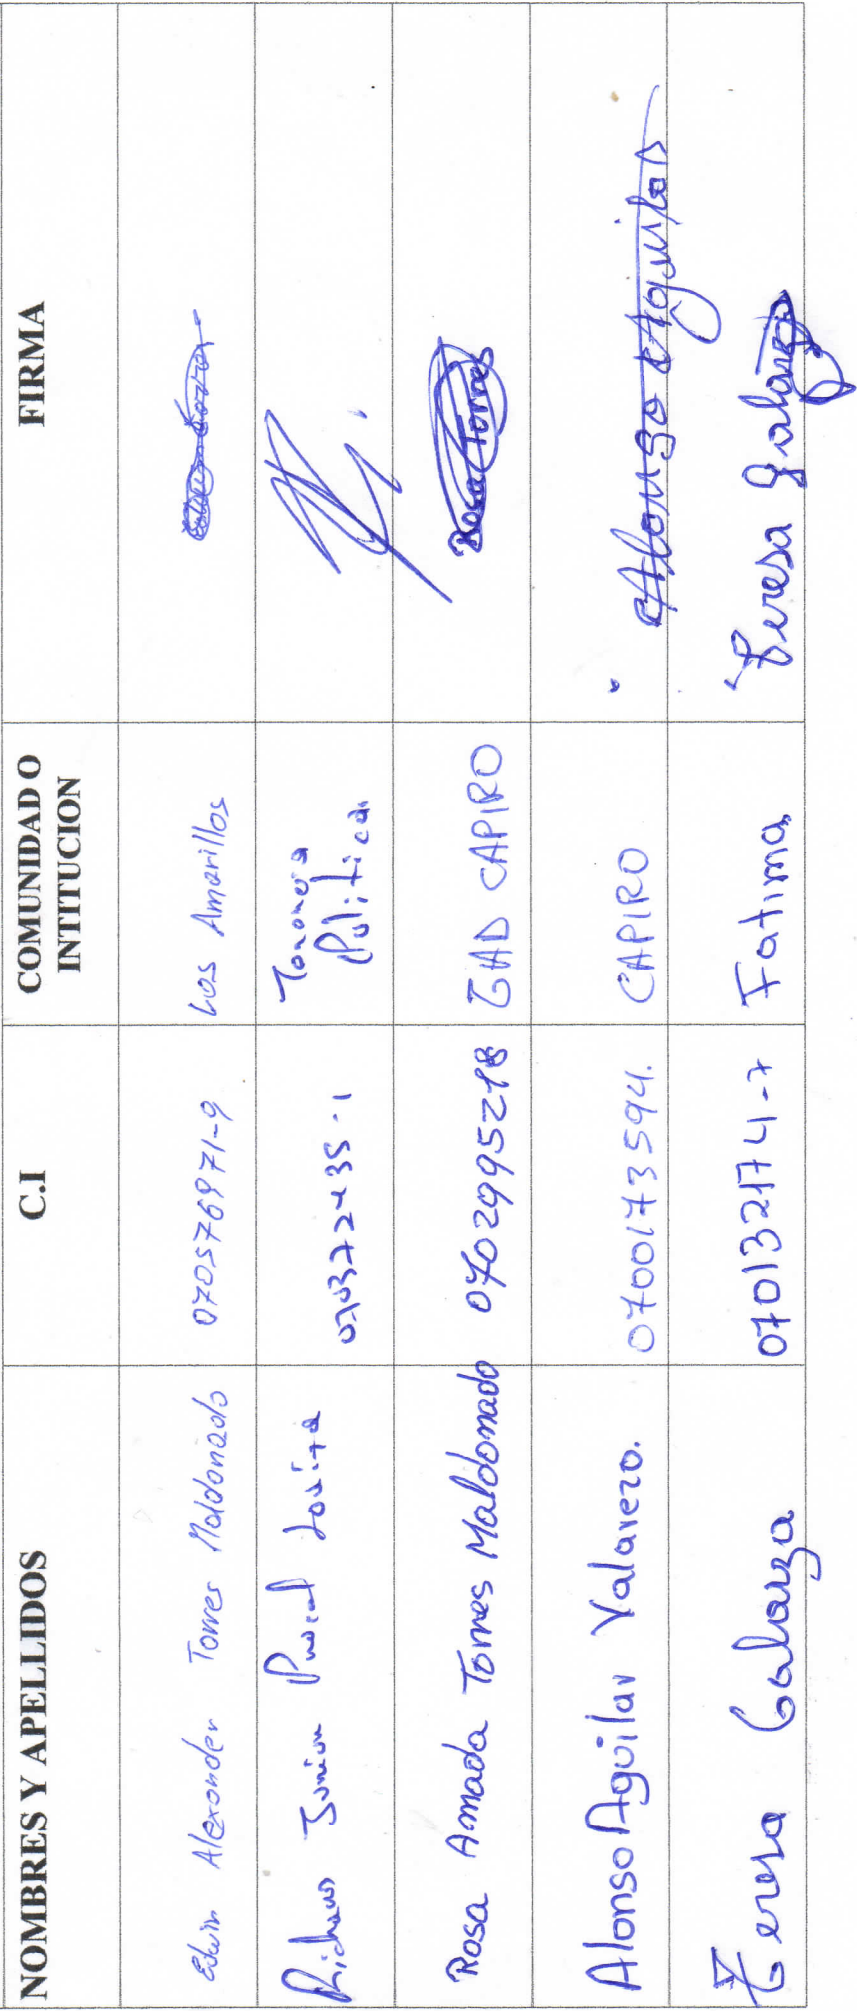 NOMBRES Y APELLIDOS C.I COMUNIDAD O INTITUCION FIRMA
Edwin Alexander Torres Maldonado 070576971-9 Los Amarillos
Junior 070372435-1 Politica
Rosa Amada Torres Maldonado 0702995218 GAD CAPIRO Rosa Torres
Alonso Aguilar Valarezo. 0700173594. CAPIRO Alonso Aguilar
Teresa Galarza 070132174-7 Fatima Teresa Galarza